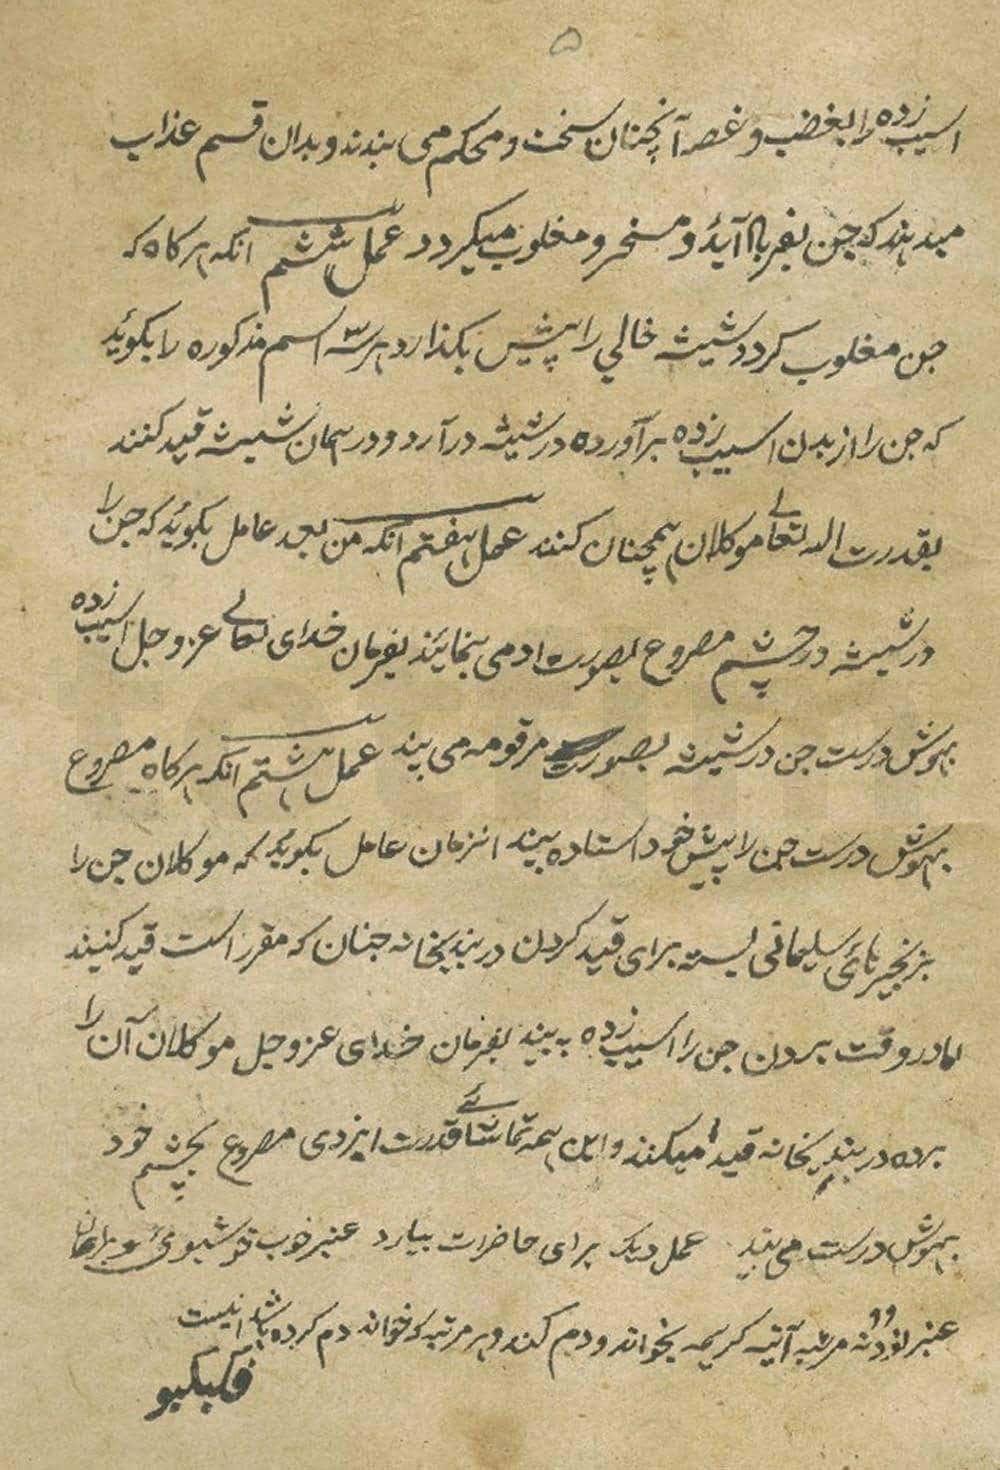 ۵
اسیب زده را بغضب و غصه آنچنان سخت و محکم می بندند و بدان قسم عذاب
میدهند که جن بفریاد آید و مسخر و مغلوب میگردد عمل ششم انکه هرکاه که
جن مغلوب کردد شیشه خالی را پیش بکذارد هر سه اسم مذکوره را بکوید
که جن را از بدن اسیب زده برآورده در شیشه درآرد و در همان شیشه قید کنند
بقدرت الله تعالے موکلان همچنان کنند عمل هفتم انکه من بعد عامل بکوید که جن را
در شیشه در چشم مصروع بصورت ادمی بنمایند بفرمان خدای تعالے عز و جل اسیب زده
بهوش درست جن در شیشه بصورت مرقومه می بیند عمل هشتم انکه هرکاه مصروع
بهوش درست جن را پیش خود استاده بیند انزمان عامل بکوید که موکلان جن را
بزنجیرهائ سلیمانی بسته برای قید کردن در بندیخانه جنان که مقرر است قید کنند
اما در وقت بردن جن را اسیب زده به بیند بفرمان خدای عز و جل موکلان آن را
برده در بندیخانه قید میکنند و این همه تماشائے قدرت ایزدی مصروع بچشم خود
بهوش درست می بیند عمل دیک برای حاضرات بیارد عنبر خوب خوشبوئ و بران
عنبر نود و نه مرتبه آیته کریمه بخواند و دم کند و هر مرتبه که خواند دم کرده باشد اینست
فکبکبو